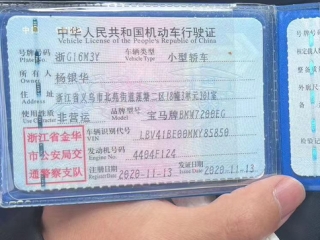 中华人民共和国机动车行驶证
Vehicle License of the People's Republic of China
号牌号码 浙G16M3Y 车辆类型 小型轿车
Plate No. Vehicle Type
所有人 杨银华
住址 浙江省义乌市北苑街道莲塘二区18幢3单元301室
使用性质 非营运 品牌型号 宝马牌BMW7200EG
浙江省金华
市公安局交
通警察支队
车辆识别代号 LBV41BE00MKY85850
发动机号码 4404F124
Engine No.
注册日期 2020-11-13 发证日期 2020-11-13